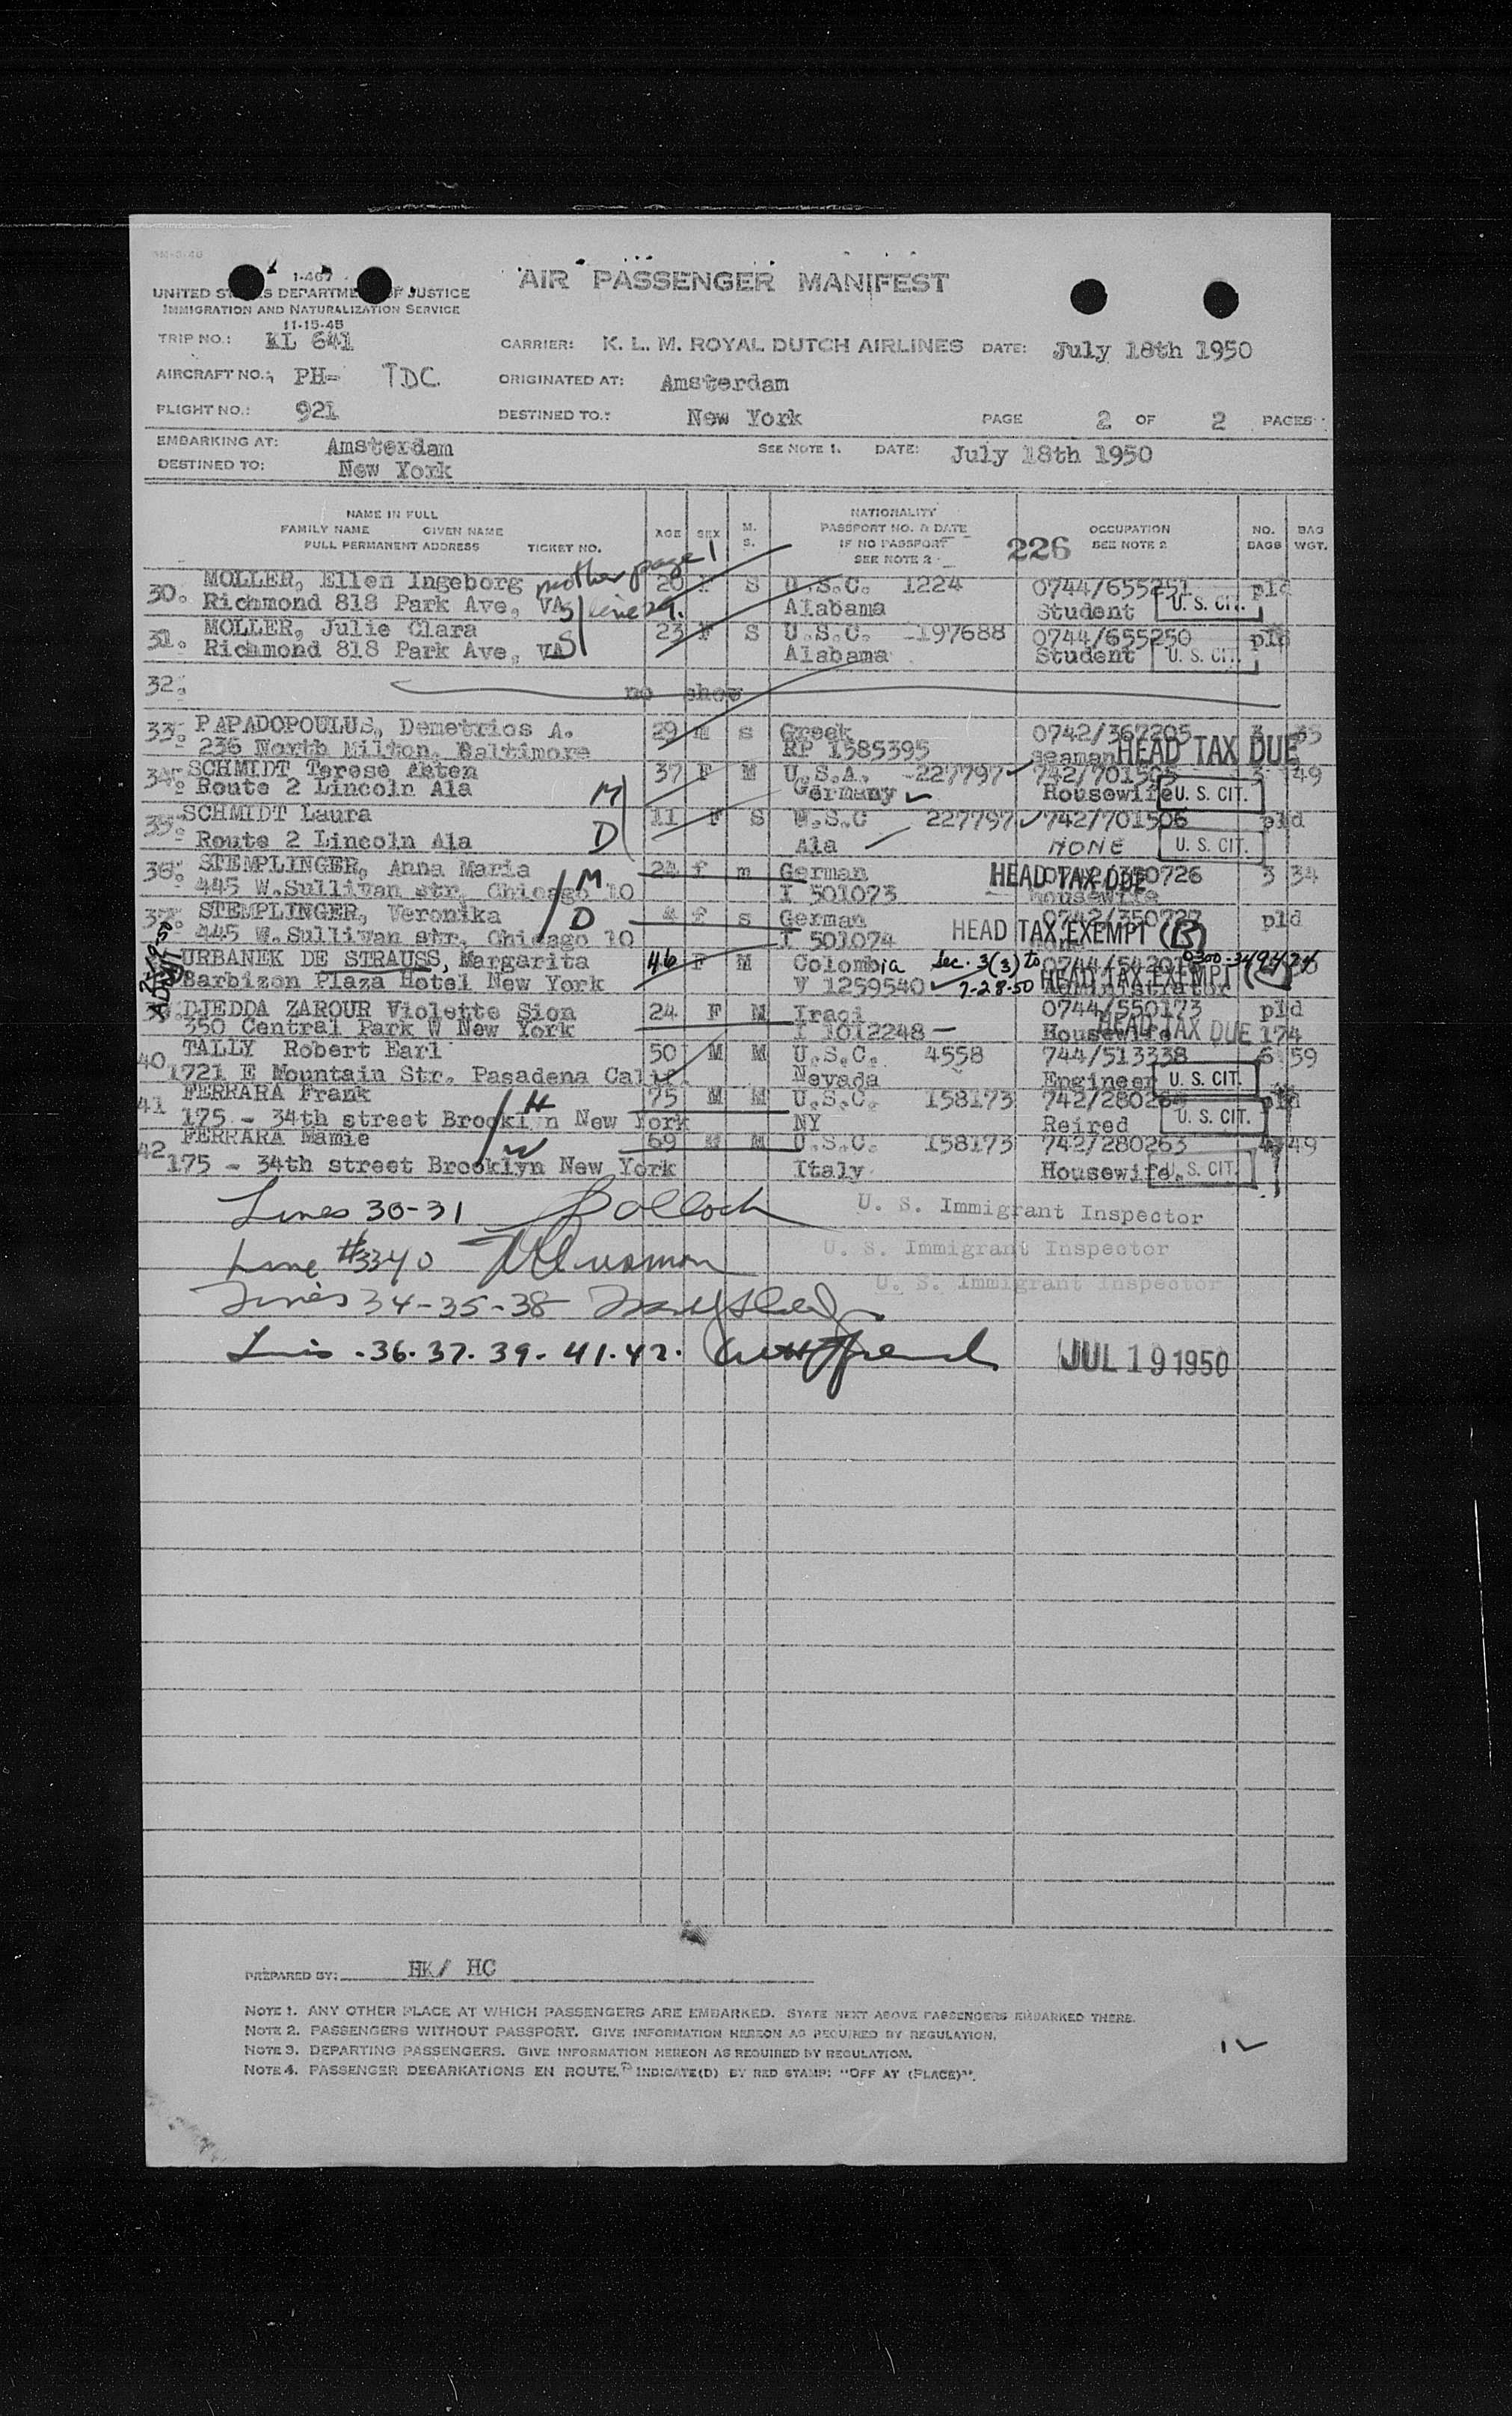 AIR PASSENGER MANIFEST
I-467
UNITED STATES DEPARTMENT OF JUSTICE
IMMIGRATION AND NATURALIZATION SERVICE
11-15-45
TRIP NO.: KL 641 CARRIER: K. L. M. ROYAL DUTCH AIRLINES DATE: July 18th 1950
AIRCRAFT NO.: PH- TDC ORIGINATED AT: Amsterdam
FLIGHT NO.: 921 DESTINED TO.: New York PAGE 2 OF 2 PAGES
EMBARKING AT: Amsterdam SEE NOTE 1. DATE: July 18th 1950
DESTINED TO: New York
NAME IN FULL
FAMILY NAME GIVEN NAME
FULL PERMANENT ADDRESS TICKET NO.
AGE SEX M. S.
NATIONALITY
PASSPORT NO. & DATE
IF NO PASSPORT
SEE NOTE 2
226
OCCUPATION
SEE NOTE 2
NO. BAGS
BAG WGT.
mother page 1
line 29.
30. MOLLER, Ellen Ingeborg 20 F S U.S.C. 1224 0744/655251 pld
Richmond 818 Park Ave, VA S Alabama Student U. S. CIT.
31. MOLLER, Julie Clara 23 F S U.S.C. -197688 0744/655250 pld
Richmond 818 Park Ave, VA S Alabama Student U. S. CIT.
32. no show
33. PAPADOPOULUS, Demetrios A. 29 m s Greek 0742/367205 3 35
236 North Milton, Baltimore RP 1585395 seaman HEAD TAX DUE
34. SCHMIDT Terese Anten 37 F M U.S.A. -227797 742/701505 3 49
Route 2 Lincoln Ala M Germany Housewife U. S. CIT.
35. SCHMIDT Laura 11 F S U.S.C 227797 742/701506 pld
Route 2 Lincoln Ala D Ala NONE U. S. CIT.
36. STEMPLINGER, Anna Maria 24 f m German 0742/350726 3 34
445 W.Sullivan str, Chicago 10 M I 501073 housewife HEAD TAX DUE
37. STEMPLINGER, Veronika 4 f s German 0742/350727 pld
445 W.Sullivan str, Chicago 10 D I 501074 HEAD TAX EXEMPT (B)
URBANEK DE STRAUSS, Margarita 46 F M Colombia Sec. 3(3) to
Barbizon Plaza Hotel New York V 1259540 7-28-50 Administrator HEAD TAX EXEMPT
DJEDDA ZAROUR Violette Sion 24 F M Iraqi 0744/550173 pld
350 Central Park W New York I 1012248 Housewife HEAD TAX DUE 174
40 TALLY Robert Earl 50 M M U.S.C. 4558 744/513338 6 59
1721 E Mountain Str. Pasadena Calif Nevada Engineer U. S. CIT.
41 FERRARA Frank 75 M M U.S.C. 158173 pld
175 - 34th street Brooklyn New York H NY Reired U. S. CIT.
42 FERRARA Mamie 69 M U.S.C. 158173 742/280263 49
175 - 34th street Brooklyn New York W Italy Housewife. U. S. CIT.
Lines 30-31 U. S. Immigrant Inspector
Line #33 40 U. S. Immigrant Inspector
Lines 34-35-38 U. S. Immigrant Inspector
Lines .36.37.39.41.42. JUL 19 1950
PREPARED BY: HK/ HC
NOTE 1. ANY OTHER PLACE AT WHICH PASSENGERS ARE EMBARKED. STATE NEXT ABOVE PASSENGERS EMBARKED THERE.
NOTE 2. PASSENGERS WITHOUT PASSPORT. GIVE INFORMATION HEREON AS REQUIRED BY REGULATION.
NOTE 3. DEPARTING PASSENGERS. GIVE INFORMATION HEREON AS REQUIRED BY REGULATION.
NOTE 4. PASSENGER DEBARKATIONS EN ROUTE. INDICATE(D) BY RED STAMP: "OFF AT (PLACE)".